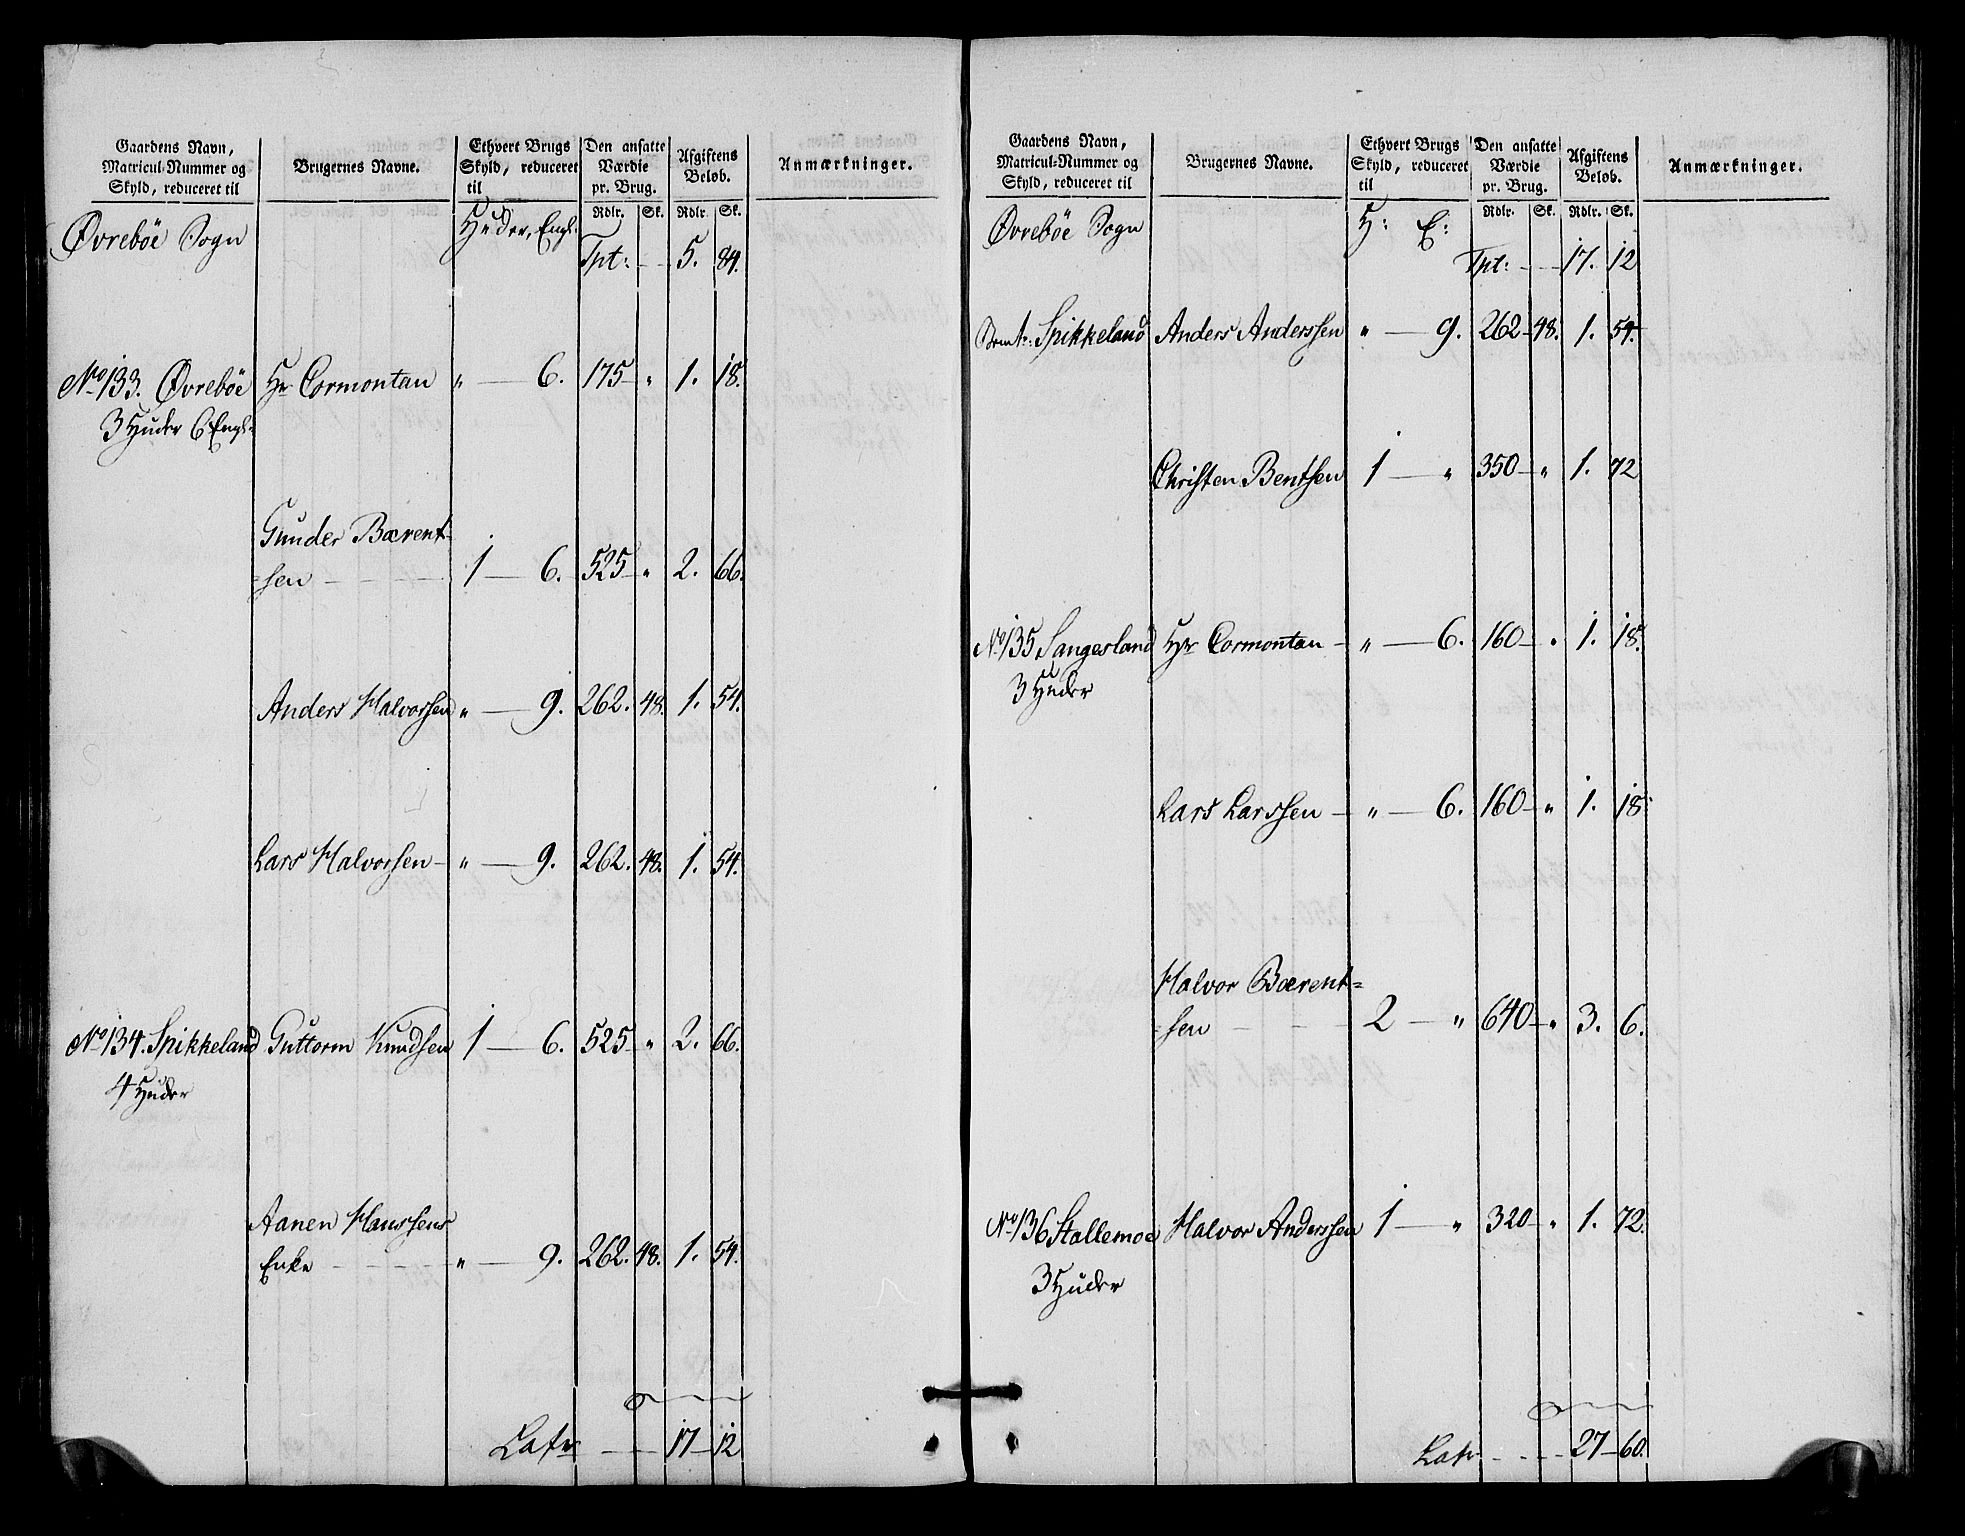 Gaardens Navn, Matricul-Nummer og Skyld, reduceret til | Brugernes Navne. | Ethvert Brugs Skyld, reduceret til | Den ansatte Værdie pr. Brug. | Afgiftens Beløb. | Anmærkninger.
Rdlr. | Sk. | Rdlr. | Sk.
Øvrebøe Sogn | Huder, Engl:
Tpt: — 5. 84.
No 133. Øvrebøe | Hr Cormontan | " — 6. | 175 — " | 1. 18.
3 Huder 6 Engl:
Gunder Bærent-
=sen — — — | 1 — 6. | 525 — " | 2. 66.
Anders Halvorsen | " — 9. | 262. 48. | 1. 54.
Lars Halvorsen — | " — 9. | 262. 48. | 1. 54.
No 134. Spikkeland | Guttorm Knudsen | 1 — 6. | 525 — " | 2. 66.
4 Huder
Aanen Hanssens
Enke — — — | " — 9. | 262. 48. | 1. 54.
Latr — — 17 — 12
Gaardens Navn, Matricul-Nummer og Skyld, reduceret til | Brugernes Navne. | Ethvert Brugs Skyld, reduceret til | Den ansatte Værdie pr. Brug. | Afgiftens Beløb. | Anmærkninger.
Rdlr. | Sk. | Rdlr. | Sk.
Øvrebøe Sogn | H: E:
Tpt: — — 17. 12
Spikkeland | Anders Anderssen | " — 9. | 262 — 48. | 1. 54.
Christen Bentsen | 1 — " | 350 — " | 1. 72
No 135 Sangesland | Hr Cormontan — | " — 6. | 160 — " | 1. 18.
3 Huder
Lars Larssen — | " — 6. | 160 — " | 1. 18.
Halvor Bærent=
=sen — — — | 2 — " | 640 — " | 3. 6.
No 136 Stallemoe | Halvor Anderssen | 1 — " | 320 — " | 1. 72.
3 Huder
Latr — — — 27 — 60.